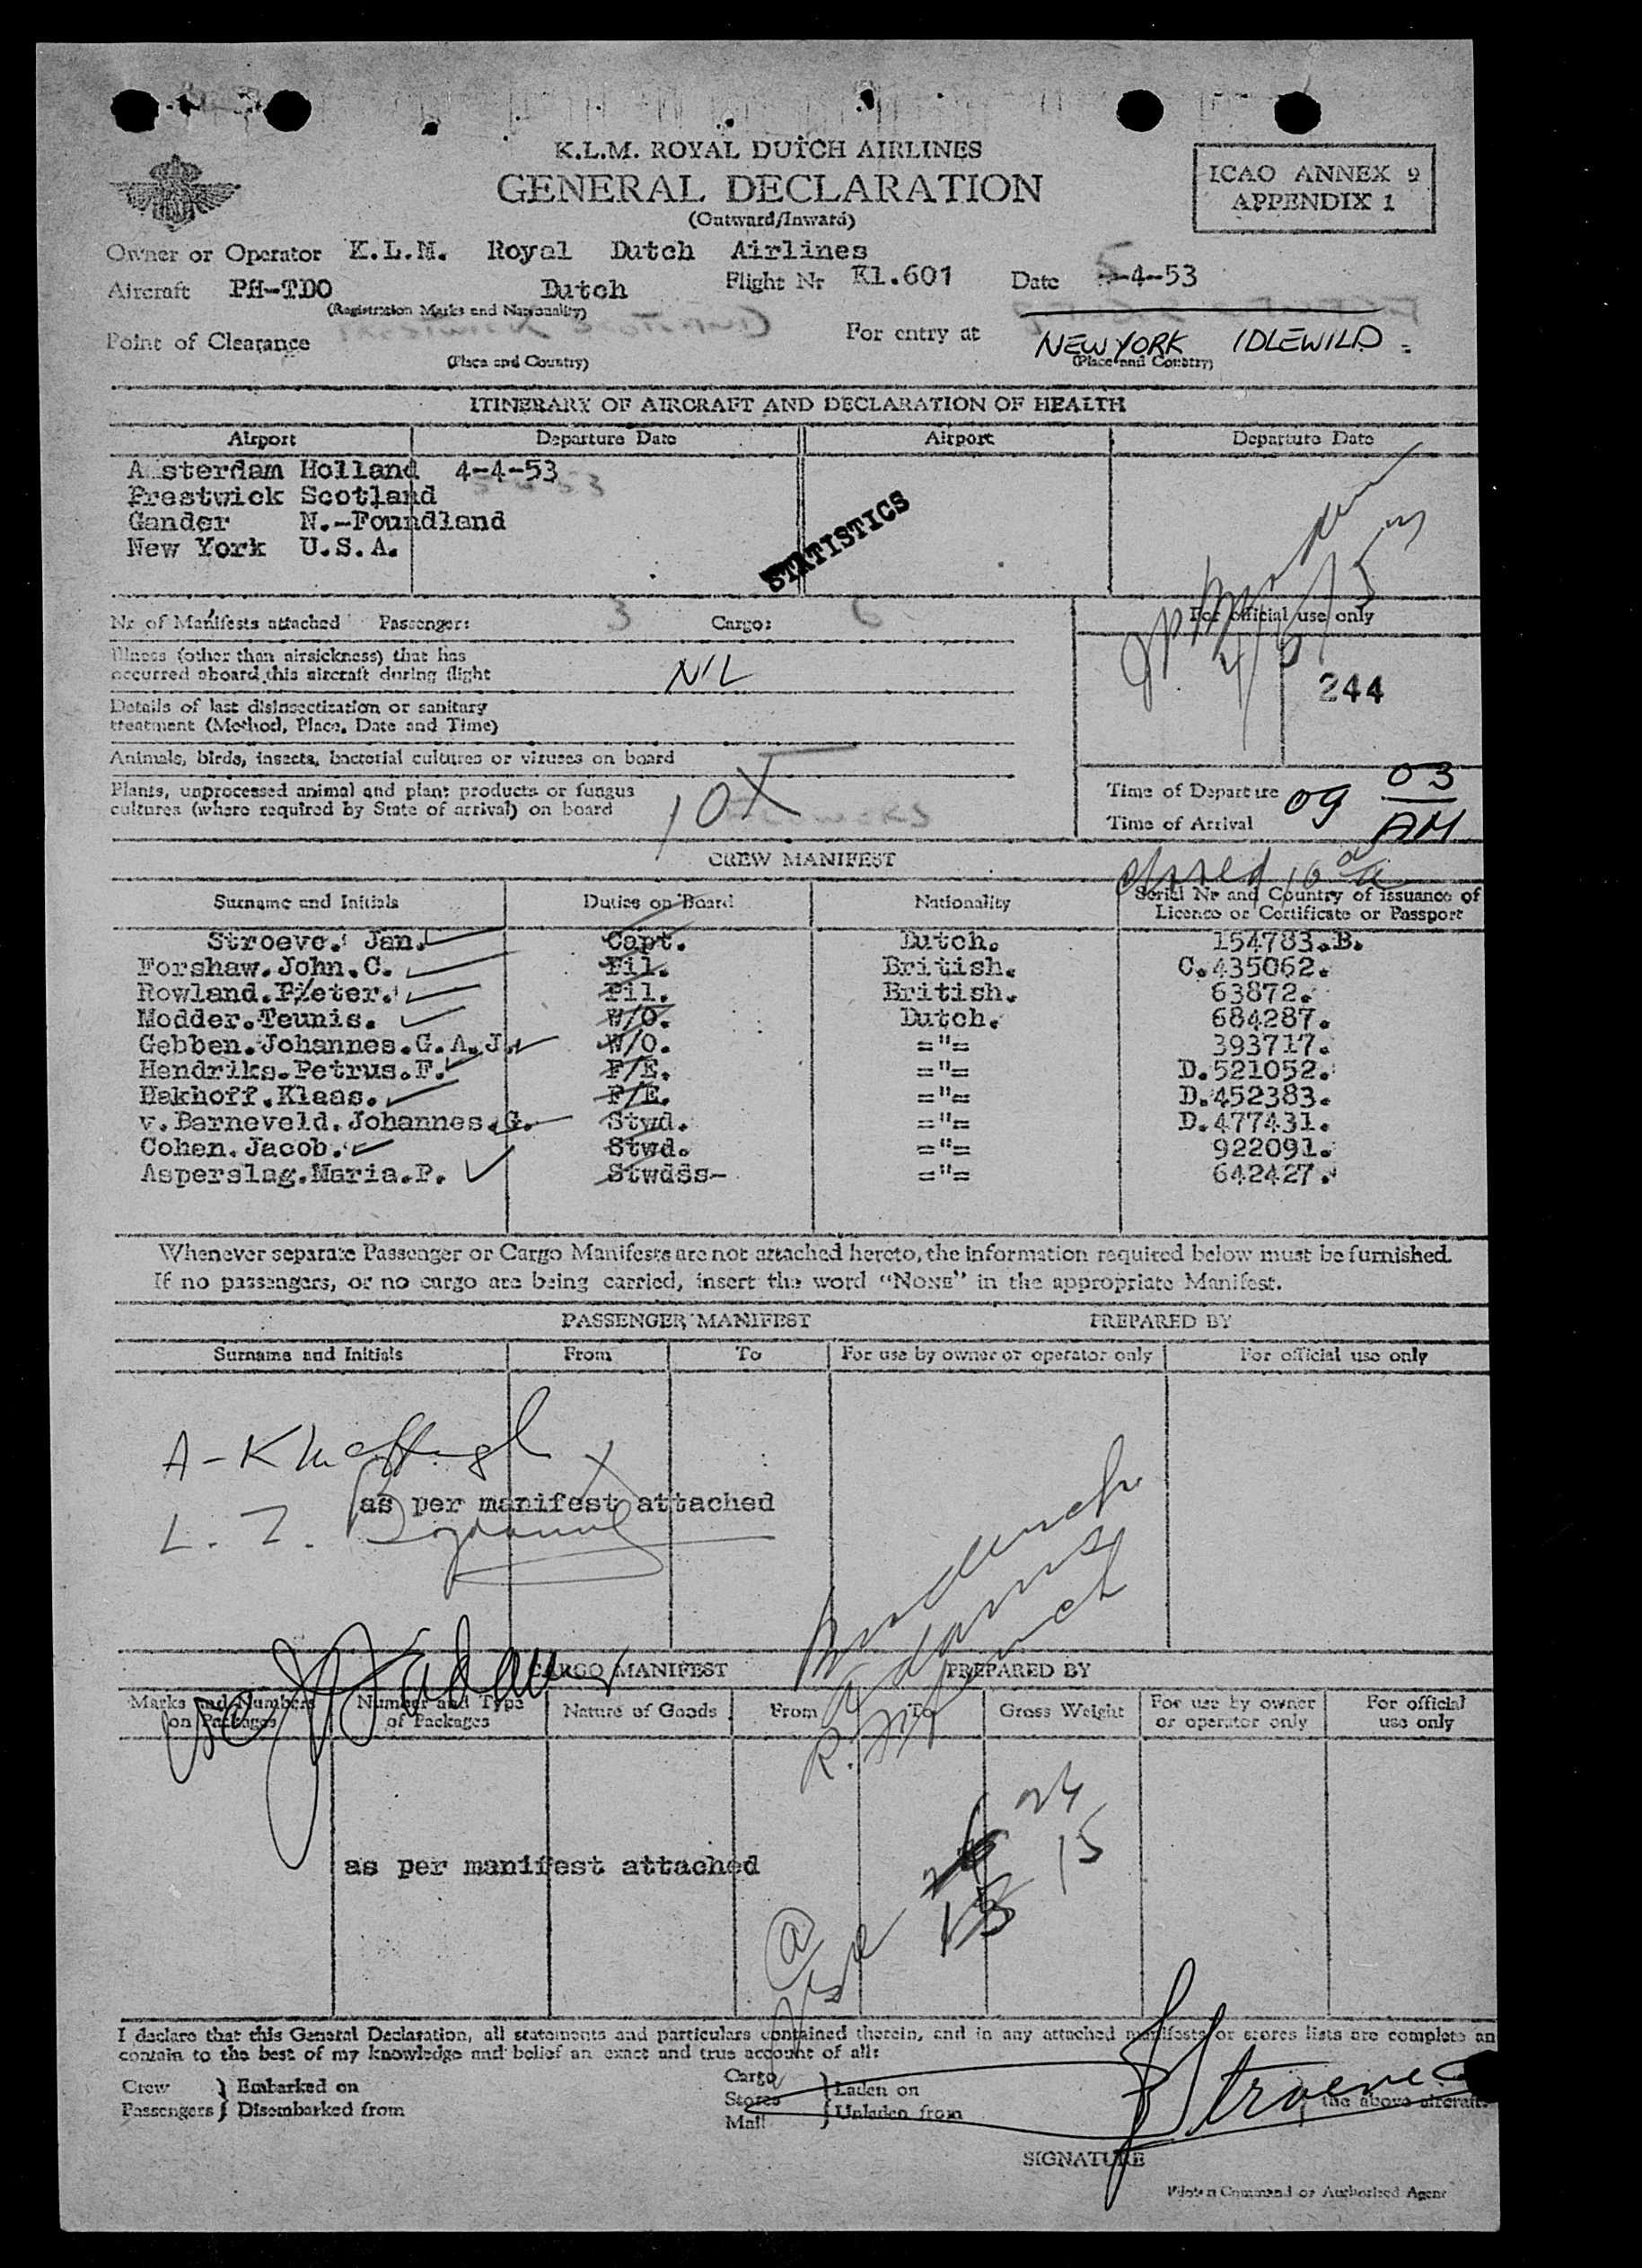 K.L.M. ROYAL DUTCH AIRLINES
GENERAL DECLARATION
(Outward/Inward)
ICAO ANNEX 9
APPENDIX 1
Owner or Operator K.L.M. Royal Dutch Airlines
Aircraft PH-TDO Dutch Flight Nr Kl.601 Date 5-4-53
(Registration Marks and Nationality)
Point of Clearance For entry at NEW YORK IDLEWILD
(Place and Country) (Place and Country)
ITINERARY OF AIRCRAFT AND DECLARATION OF HEALTH
Airport Departure Date Airport Departure Date
A sterdam Holland 4-4-53
Prestwick Scotland
Gander N.-Foundland
New York U.S.A.
STATISTICS
Nr of Manifests attached Passenger: 3 Cargo: 6
For official use only
Illness (other than airsickness) that has
occurred aboard this aircraft during flight NIL
244
Details of last disinsectization or sanitary
treatment (Method, Place, Date and Time)
Animals, birds, insects, bacterial cultures or viruses on board
Plants, unprocessed animal and plant products or fungus
cultures (where required by State of arrival) on board
Time of Departure
Time of Arrival 09 03 AM
CREW MANIFEST
Surname and Initials Duties on Board Nationality Serial Nr and Country of issuance of
License or Certificate or Passport
Stroeve. Jan. Capt. Dutch. 154783.B.
Forshaw.John.C. Pil. British. C.435062.
Rowland.P/eter. Pil. British. 63872.
Modder.Teunis. W/O. Dutch. 684287.
Gebben.Johannes.G.A.J. W/O. ="= 393717.
Hendriks.Petrus.F. F/E. ="= D.521052.
Hakhoff.Klaas. F/E. ="= D.452383.
v.Barneveld.Johannes.G. Stwd. ="= D.477431.
Cohen.Jacob. Stwd. ="= 922091.
Asperslag.Maria.P. Stwdss- ="= 642427.
Whenever separate Passenger or Cargo Manifests are not attached hereto, the information required below must be furnished.
If no passengers, or no cargo are being carried, insert the word "NONE" in the appropriate Manifest.
PASSENGER MANIFEST PREPARED BY
Surname and Initials From To For use by owner or operator only For official use only
as per manifest attached
CARGO MANIFEST PREPARED BY
Marks and Numbers on Packages Number and Type of Packages Nature of Goods From To Gross Weight For use by owner or operator only For official use only
24
15
as per manifest attached
I declare that this General Declaration, all statements and particulars contained therein, and in any attached manifests or stores lists are complete an
contain to the best of my knowledge and belief an exact and true account of all:
Crew Passengers } Embarked on Disembarked from
Cargo Stores Mail } Laden on Unladen from
the above aircraft.
JStroeve
SIGNATURE
Pilot in Command or Authorized Agent